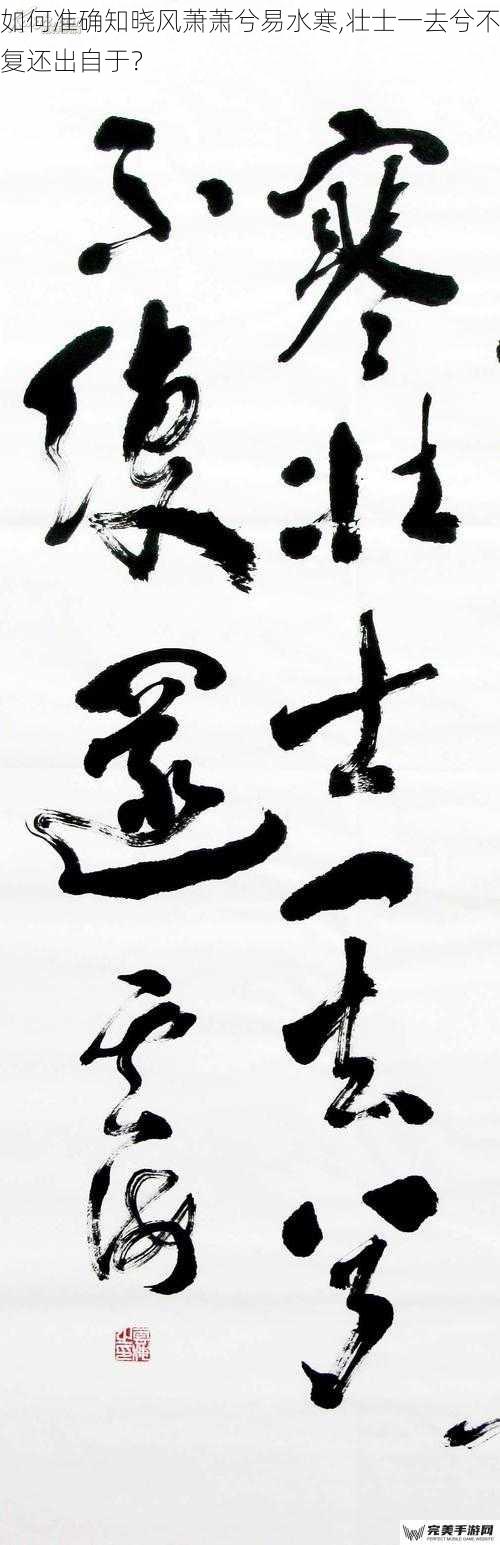 如何准确知晓风萧萧兮易水寒,壮士一去兮不
复还出自于？
寒壮士一去兮
不復還 雲海
完美手游网
PERFECT MOBILE GAME WEBSITE